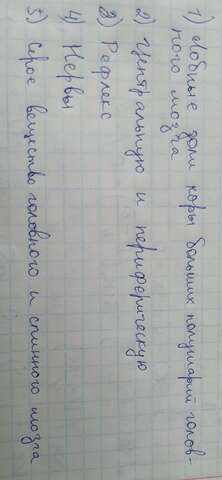 1) Лобные доли коры больших полушарий голов-
ного мозга
2) Центральную и периферическую
3) Рефлекс
4) Нервы
5) Серое вещество головного и спинного мозга